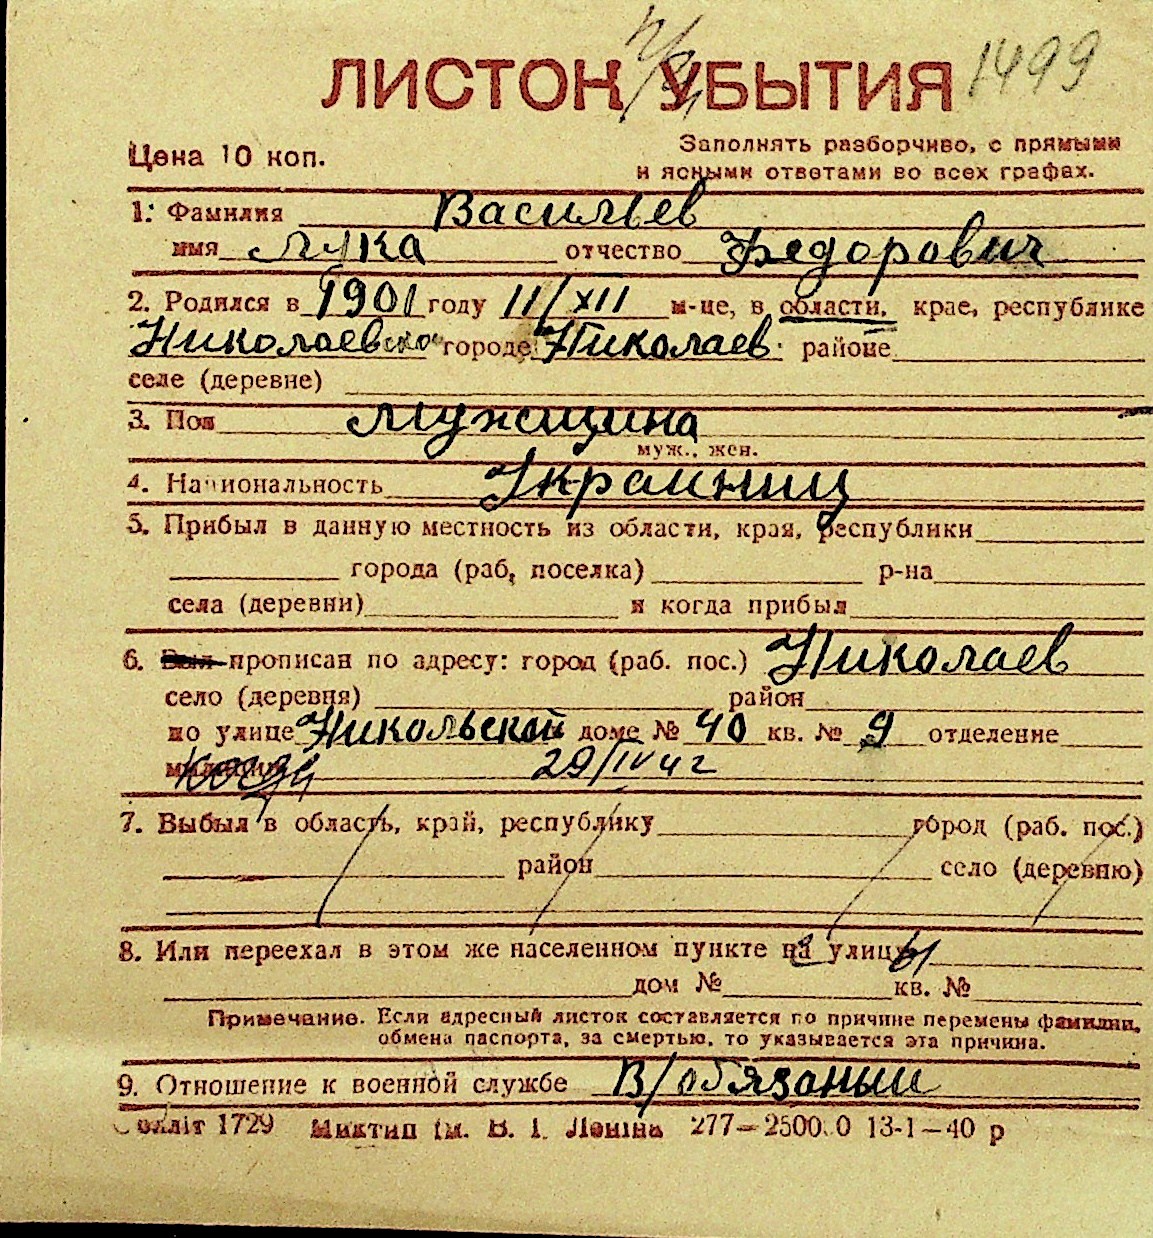 1499
ЛИСТОК УБЫТИЯ
Цена 10 коп.
Заполнять разборчиво, с прямыми
и ясными ответами во всех графах.
1. Фамилия Васильев
имя Лука отчество Федорович
2. Родился в 1901 году 11/XII м-це, в области, крае, республике
Николаевско городе Николаев районе
селе (деревне)
3. Пол Мужщина
муж., жен.
4. Национальность Украинец
5. Прибыл в данную местность из области, края, республики
города (раб. поселка) р-на
села (деревни) и когда прибыл
6. Был прописан по адресу: город (раб. пос.) Николаев
село (деревня) район
по улице Никольской доме № 40 кв. № 9 отделение
милиции 29/IV 42
7. Выбыл в область, край, республику город (раб. пос.)
район село (деревню)
8. Или переехал в этом же населенном пункте на улицу
дом № кв. №
Примечание. Если адресный листок составляется по причине перемены фамилии,
обмена паспорта, за смертью, то указывается эта причина.
9. Отношение к военной службе В/обязаный
1729 Миктип ім. В. І. Леніна 277—25000 13-1—40 р